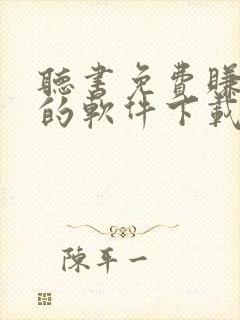 聽書免費賺
的軟件下載
陳平一